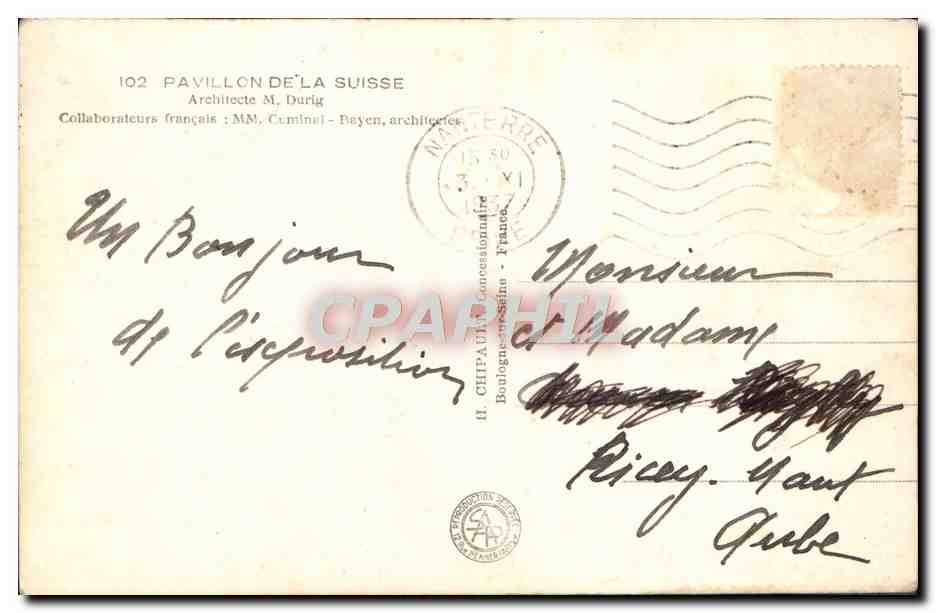 102 PAVILLON DE LA SUISSE
Architecte M. Durig
Collaborateurs français : MM. Cuminal - Bayen, architectes
NANTERRE
15 30
3 · XI
Un Bonjour
de l'exposition
H. CHIPAULT, Concessionnaire
Boulogne-sur-Seine - France.
Monsieur
et Madame
Ricey-Haut
Aube
CPAPHIL
REPRODUCTION